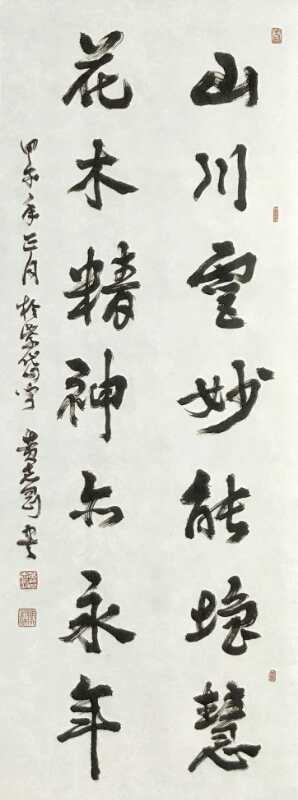 山川灵妙能增慧
花木精神亦永年
甲午年正月